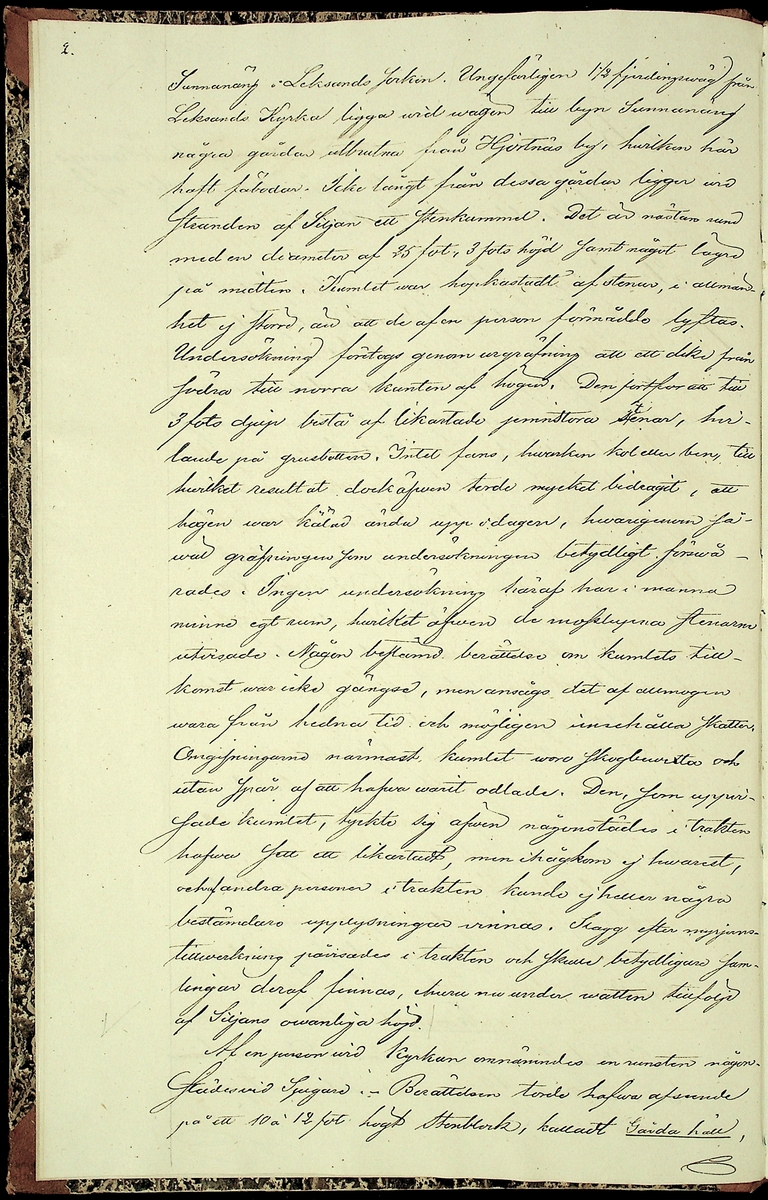 2.
Sunnanäng i Leksands socken. Ungefärligen 1 1/2 fjerdingswäg från
Leksands Kyrka ligga wid wägen till byn Sunnanäng
några gårdar utbrutna från Hjortnäs by, hwilken här
haft fäbodar. Icke långt från dessa gårdar ligger wid
stranden af Siljan ett Stenkummel. Det är nästan rund
med en diameter af 25 fot, 3 fots höjd samt något lägre
på midten. Kumlet war hopkastadt af stenar, i allmän-
het ej större, än att de af en person förmådde lyftas.
Undersökning företogs genom urgräfning att ett dike från
södra till norra kanten af högen. Den fortfor att till
3 fots djup bestå af likartade jemnstora stenar, hwi-
lande på grusbotten. Intet fans, hwarken kol eller ben, till
hwilket resultat dock äfwen torde mycket bidragit, att
högen war kälad ända upp i dagen, hwarigenom så-
wäl gräfningen som undersökningen betydligt förswå-
rades. Ingen undersökning häraf har i manna
minne egt rum, hwilket äfwen de mosslupna stenarne
utwisade. Någon bestämd berättelse om kumlets till-
komst war icke gängse, men ansågs det af allmogen
wara från hedna tid och möjligen innehålla skatter.
Omgifningarne närmast kumlet woro skogbewuxta och
utan spår af att hafwa warit odlade. Den, som uppwi-
sade kumlet, tyckte sig äfwen någonstädes i trakten
hafwa sett ett likartadt, men ihågkom ej hwarest,
och af andra personer i trakten kunde ej heller några
bestämdare upplysningar winnas. Slagg efter myrjerns-
tillwerkning påwisades i trakten och skulle betydligare sam-
lingar deraf finnas, ehuru nu under watten till följd
af Siljans owanliga höjd.
Af en person wid Kyrkan omnämndes en runsten någon-
städes wid Sjugare. – Berättelsen torde hafwa afseende
på ett 10 à 12 fot högt Stenblock, kalladt Gärda häll,